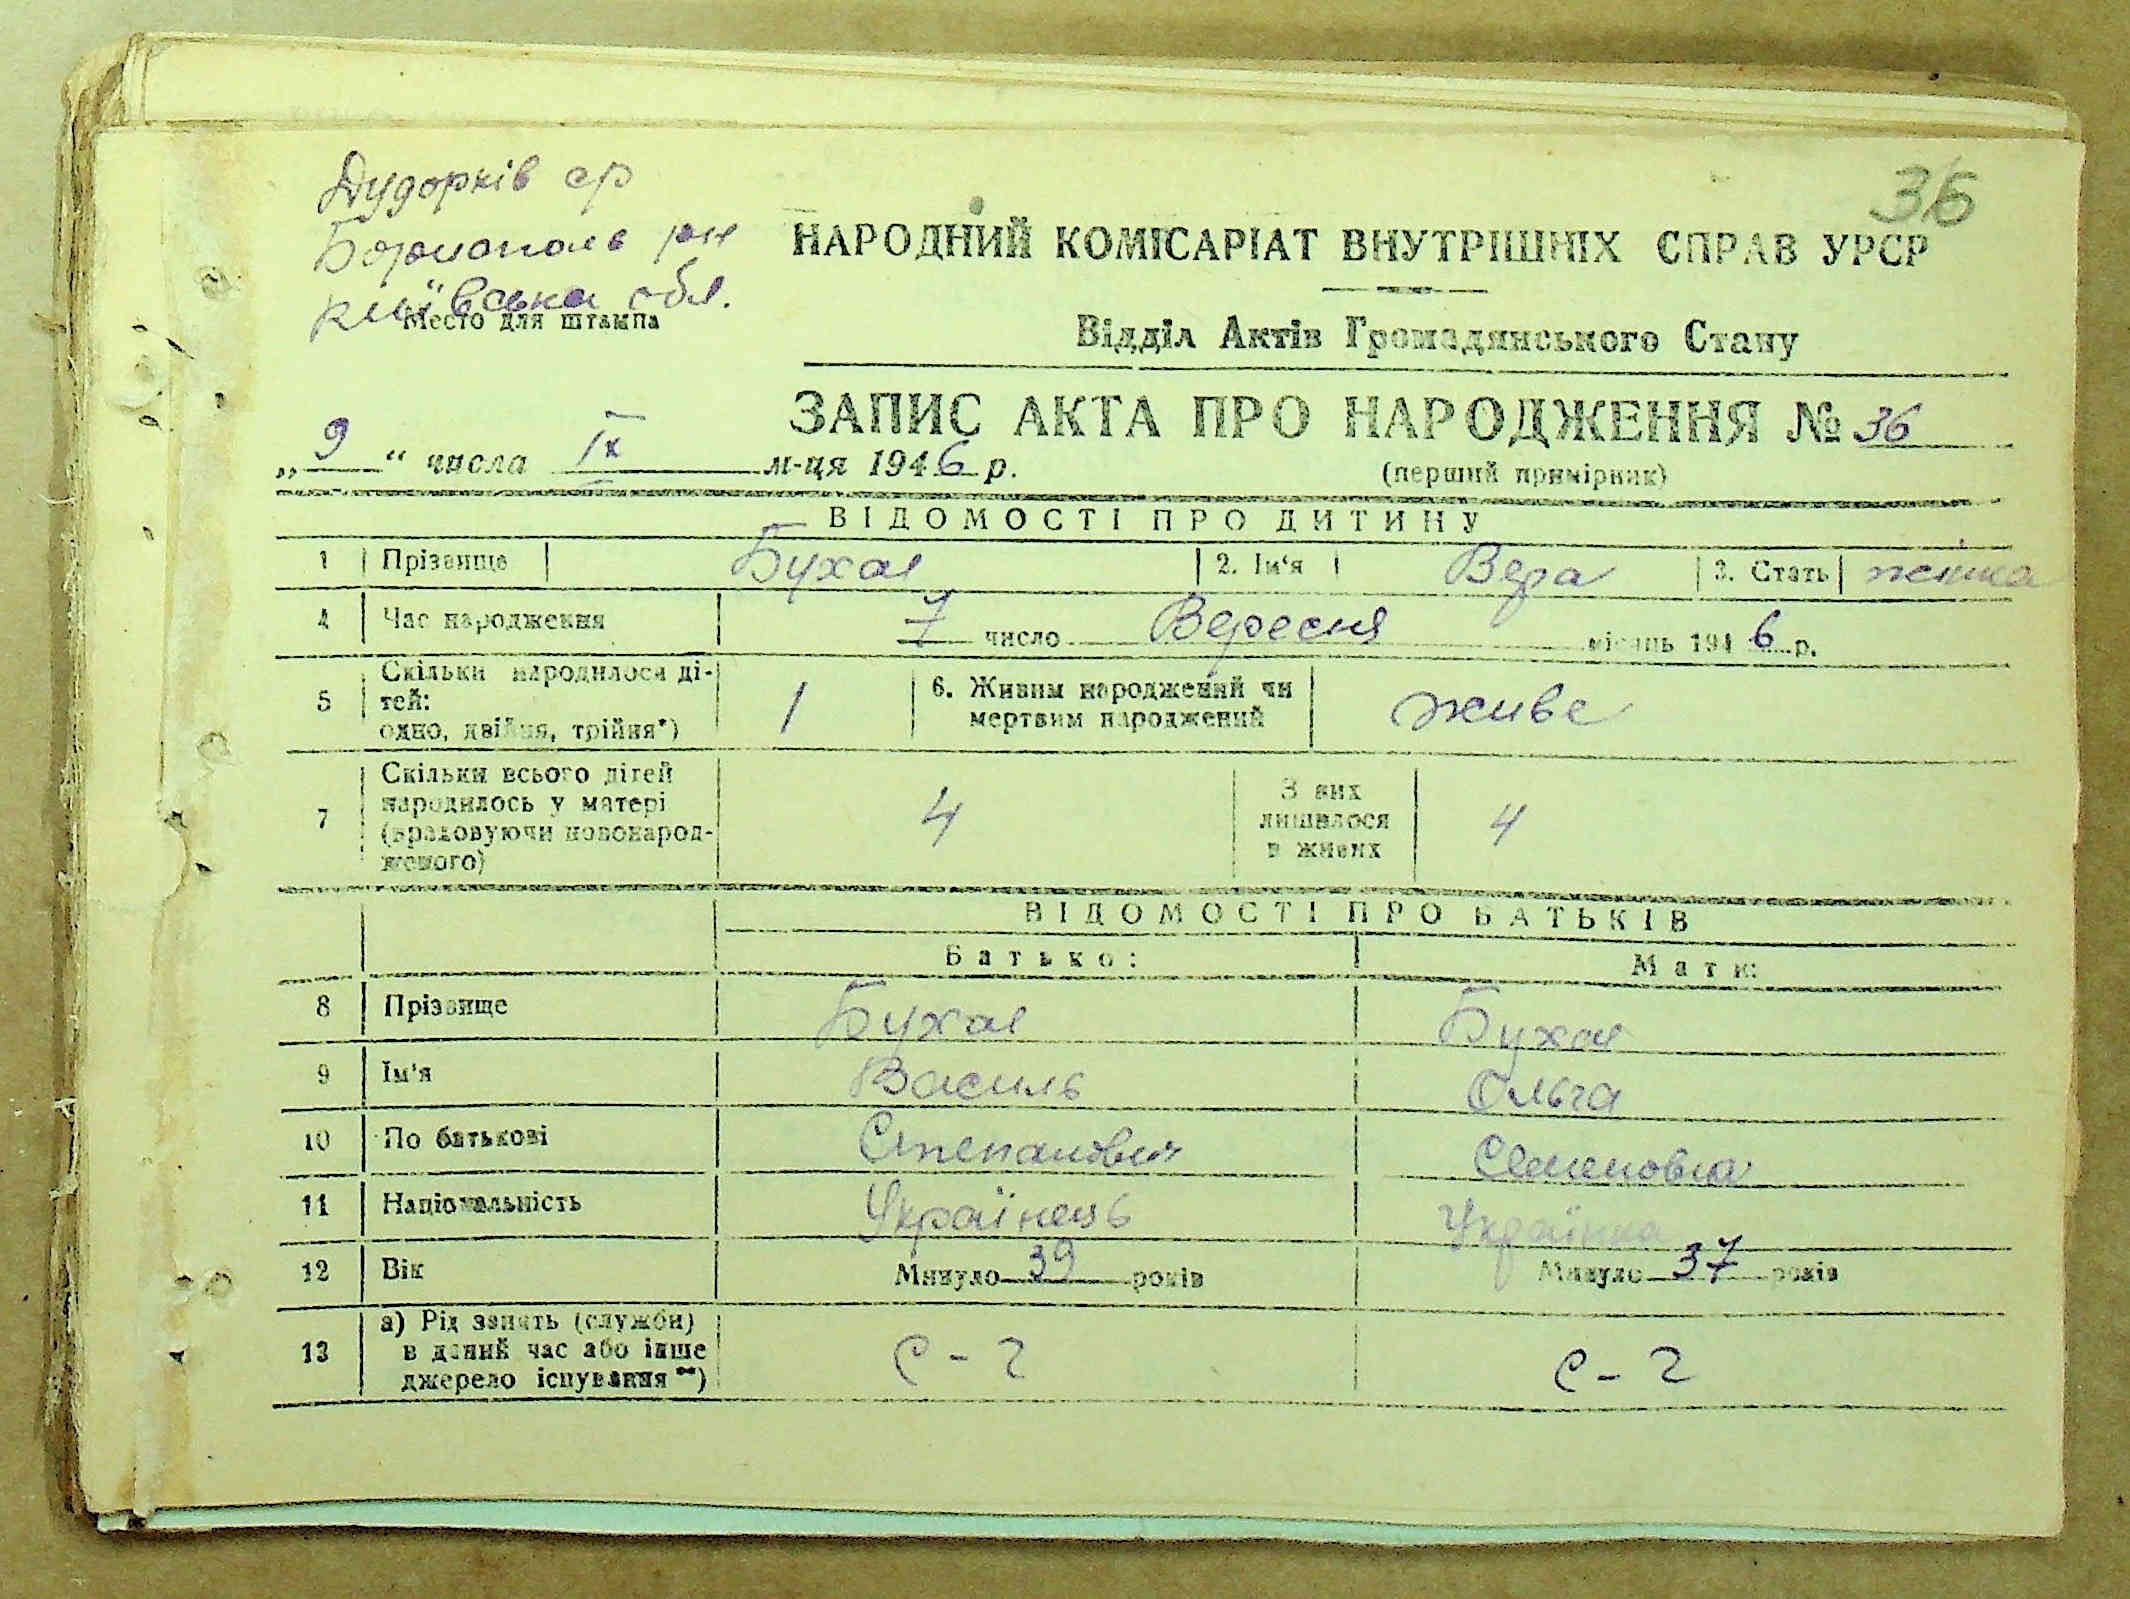 Дударків ср
36
Бориспаль рн
Київська обл.
НАРОДНИЙ КОМІСАРІАТ ВНУТРІШНІХ СПРАВ УРСР
Место для штампа
Відділ Актів Громадянського Стану
ЗАПИС АКТА ПРО НАРОДЖЕННЯ № 36
„ 9 “ числа IX м-ця 1946 р.
(перший примірник)
ВІДОМОСТІ ПРО ДИТИНУ
1 Прізвище Бухал 2. Ім'я Вера 3. Стать жінка
4 Час народження 7 число Вересня місяць 1946 р.
5 Скільки народилося ді-
тей:
одно, двійня, трійня*) 1
6. Живим народжений чи
мертвим народжений живе
7 Скільки всього дітей
народилось у матері
(враховуючи новонарод-
женого) 4
З них
лишилося
в живих 4
ВІДОМОСТІ ПРО БАТЬКІВ
Батько: Мати:
8 Прізвище Бухал Бухал
9 Ім'я Василь Ольга
10 По батькові Степанович Семеновна
11 Національність Українець Українка
12 Вік Минуло 39 років Минуло 37 років
13 а) Рід занять (служби)
в даний час або інше
джерело існування **) с-г с-г